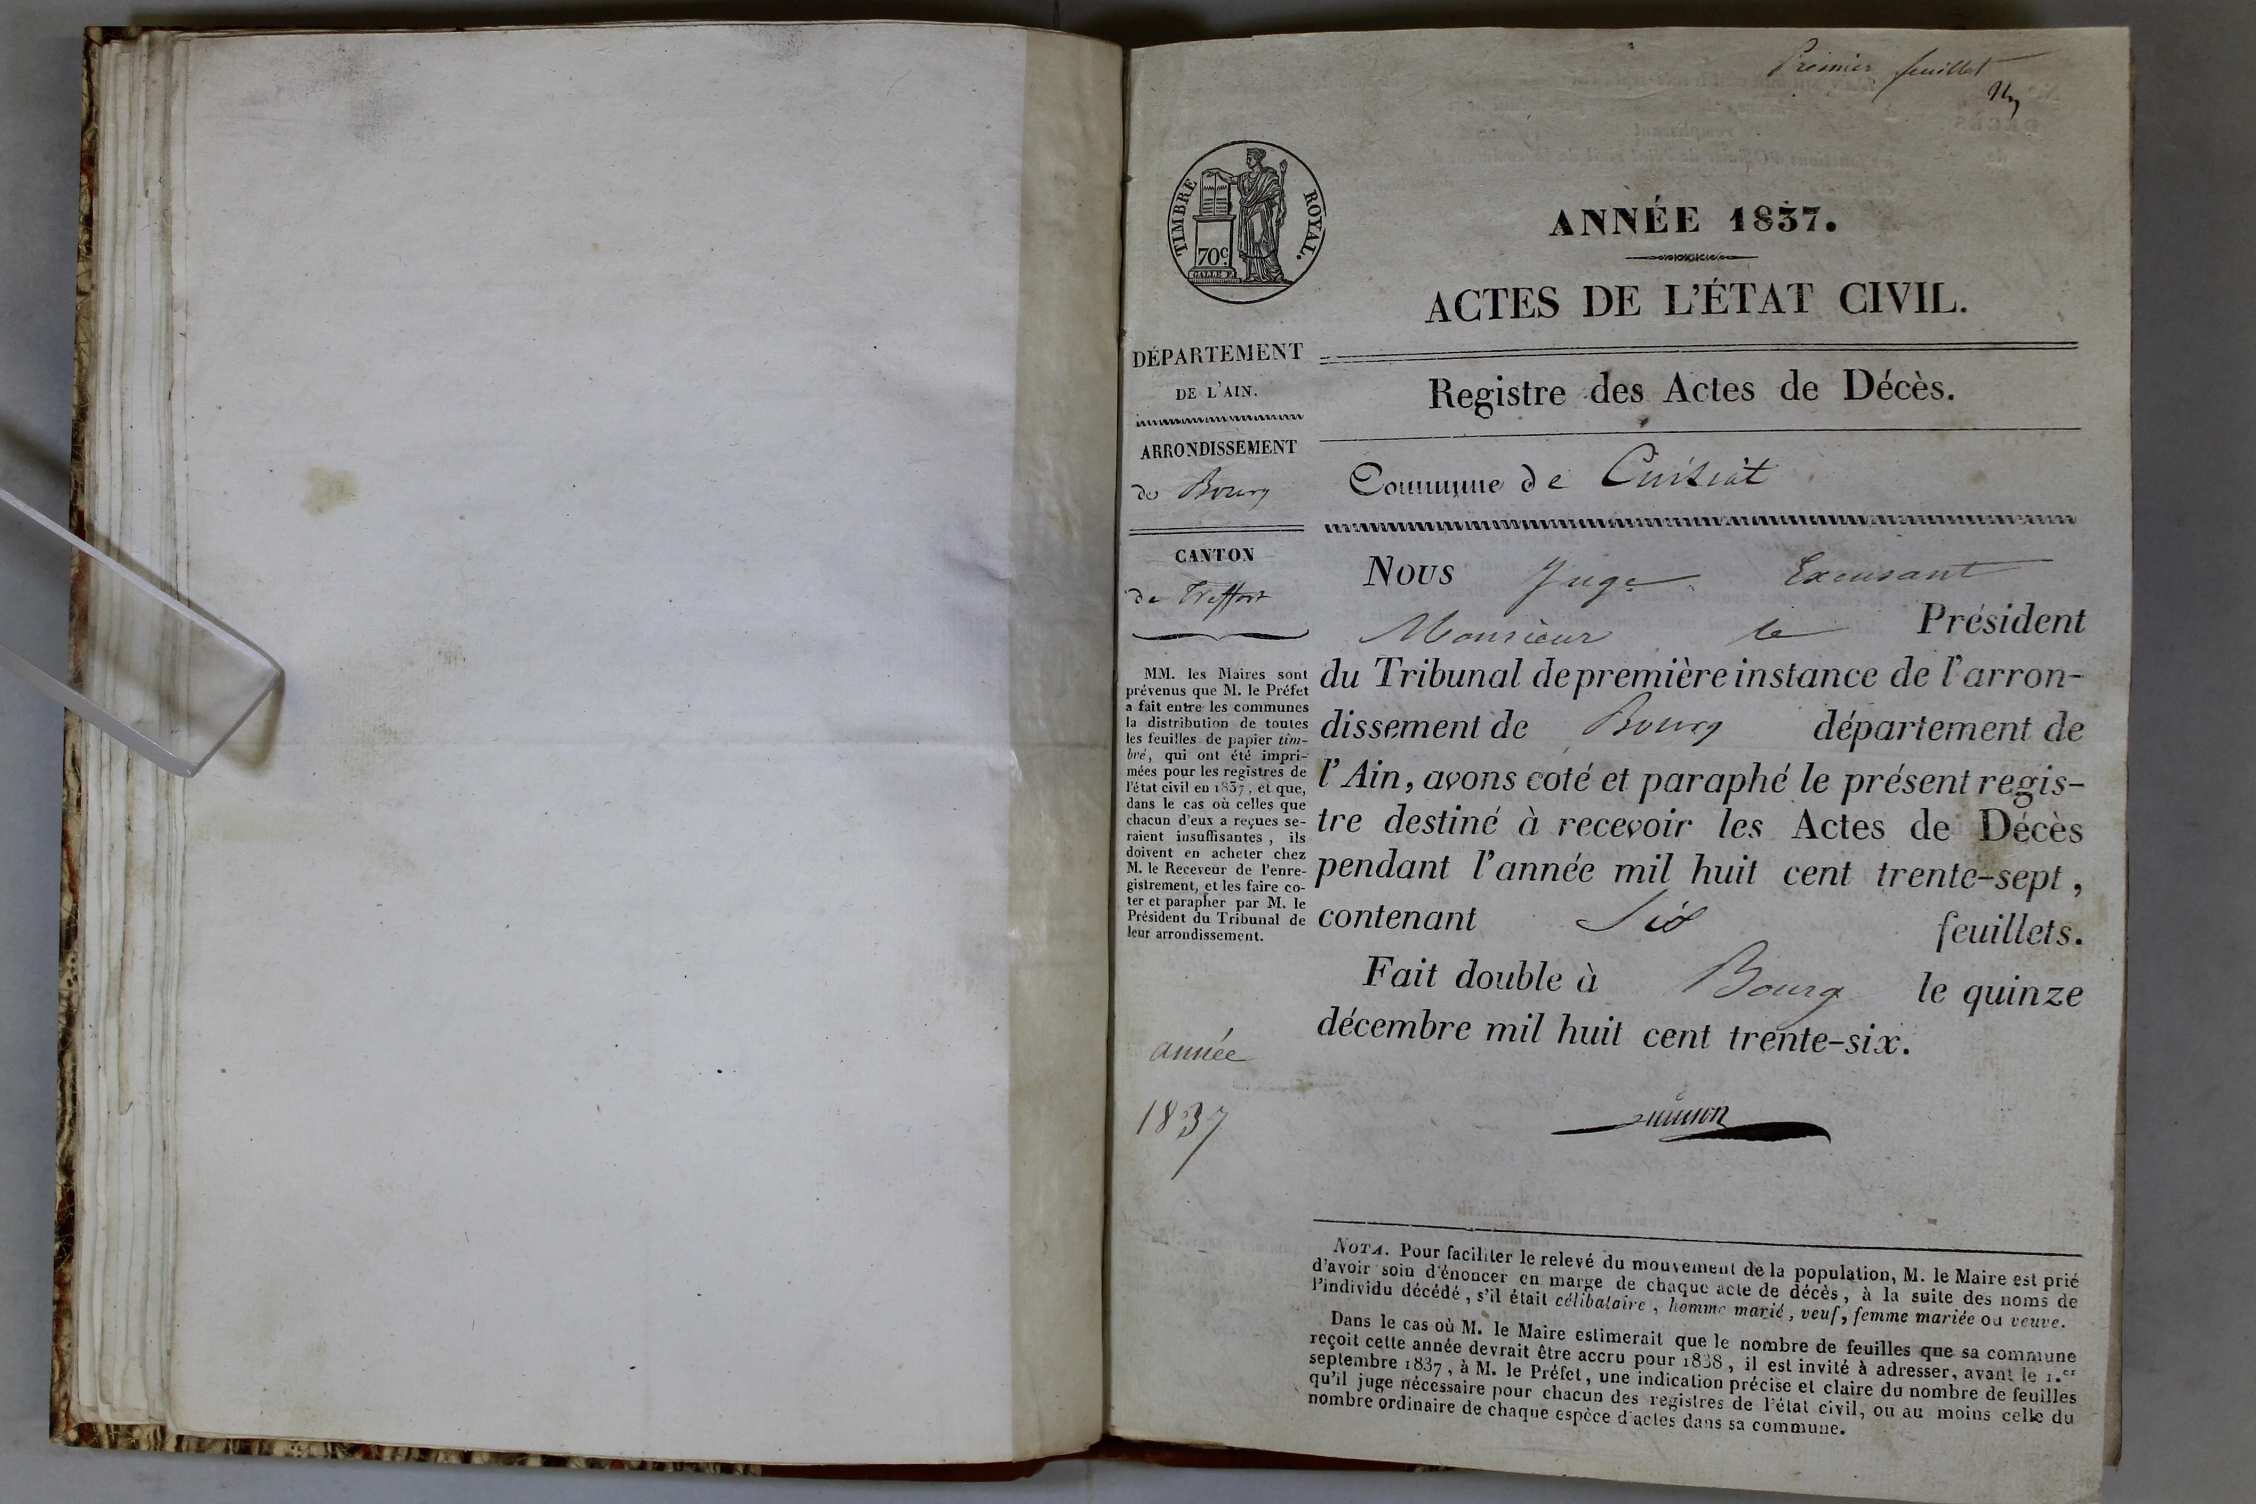 Premier feuillet
TIMBRE ROYAL.
70c
ANNÉE 1837.
ACTES DE L'ÉTAT CIVIL.
DÉPARTEMENT
DE L'AIN.
ARRONDISSEMENT
de Bourg
CANTON
de Treffort
MM. les Maires sont
prévenus que M. le Préfet
a fait entre les communes
la distribution de toutes
les feuilles de papier tim-
bré, qui ont été impri-
mées pour les registres de
l'état civil en 1837, et que,
dans le cas où celles que
chacun d'eux a reçues se-
raient insuffisantes, ils
doivent en acheter chez
M. le Receveur de l'enre-
gistrement, et les faire co-
ter et parapher par M. le
Président du Tribunal de
leur arrondissement.
année
1837
Registre des Actes de Décès.
Commune de Cuisiat
Nous Juge Excusant
Monsieur le Président
du Tribunal de première instance de l'arron-
dissement de Bourg département de
l'Ain, avons coté et paraphé le présent regis-
tre destiné à recevoir les Actes de Décès
pendant l'année mil huit cent trente-sept,
contenant Six feuillets.
Fait double à Bourg le quinze
décembre mil huit cent trente-six.
NOTA. Pour faciliter le relevé du mouvement de la population, M. le Maire est prié
d'avoir soin d'énoncer en marge de chaque acte de décès, à la suite des noms de
l'individu décédé, s'il était célibataire, homme marié, veuf, femme mariée ou veuve.
Dans le cas où M. le Maire estimerait que le nombre de feuilles que sa commune
reçoit cette année devrait être accru pour 1838, il est invité à adresser, avant le 1.er
septembre 1837, à M. le Préfet, une indication précise et claire du nombre de feuilles
qu'il juge nécessaire pour chacun des registres de l'état civil, ou au moins celle du
nombre ordinaire de chaque espèce d'actes dans sa commune.